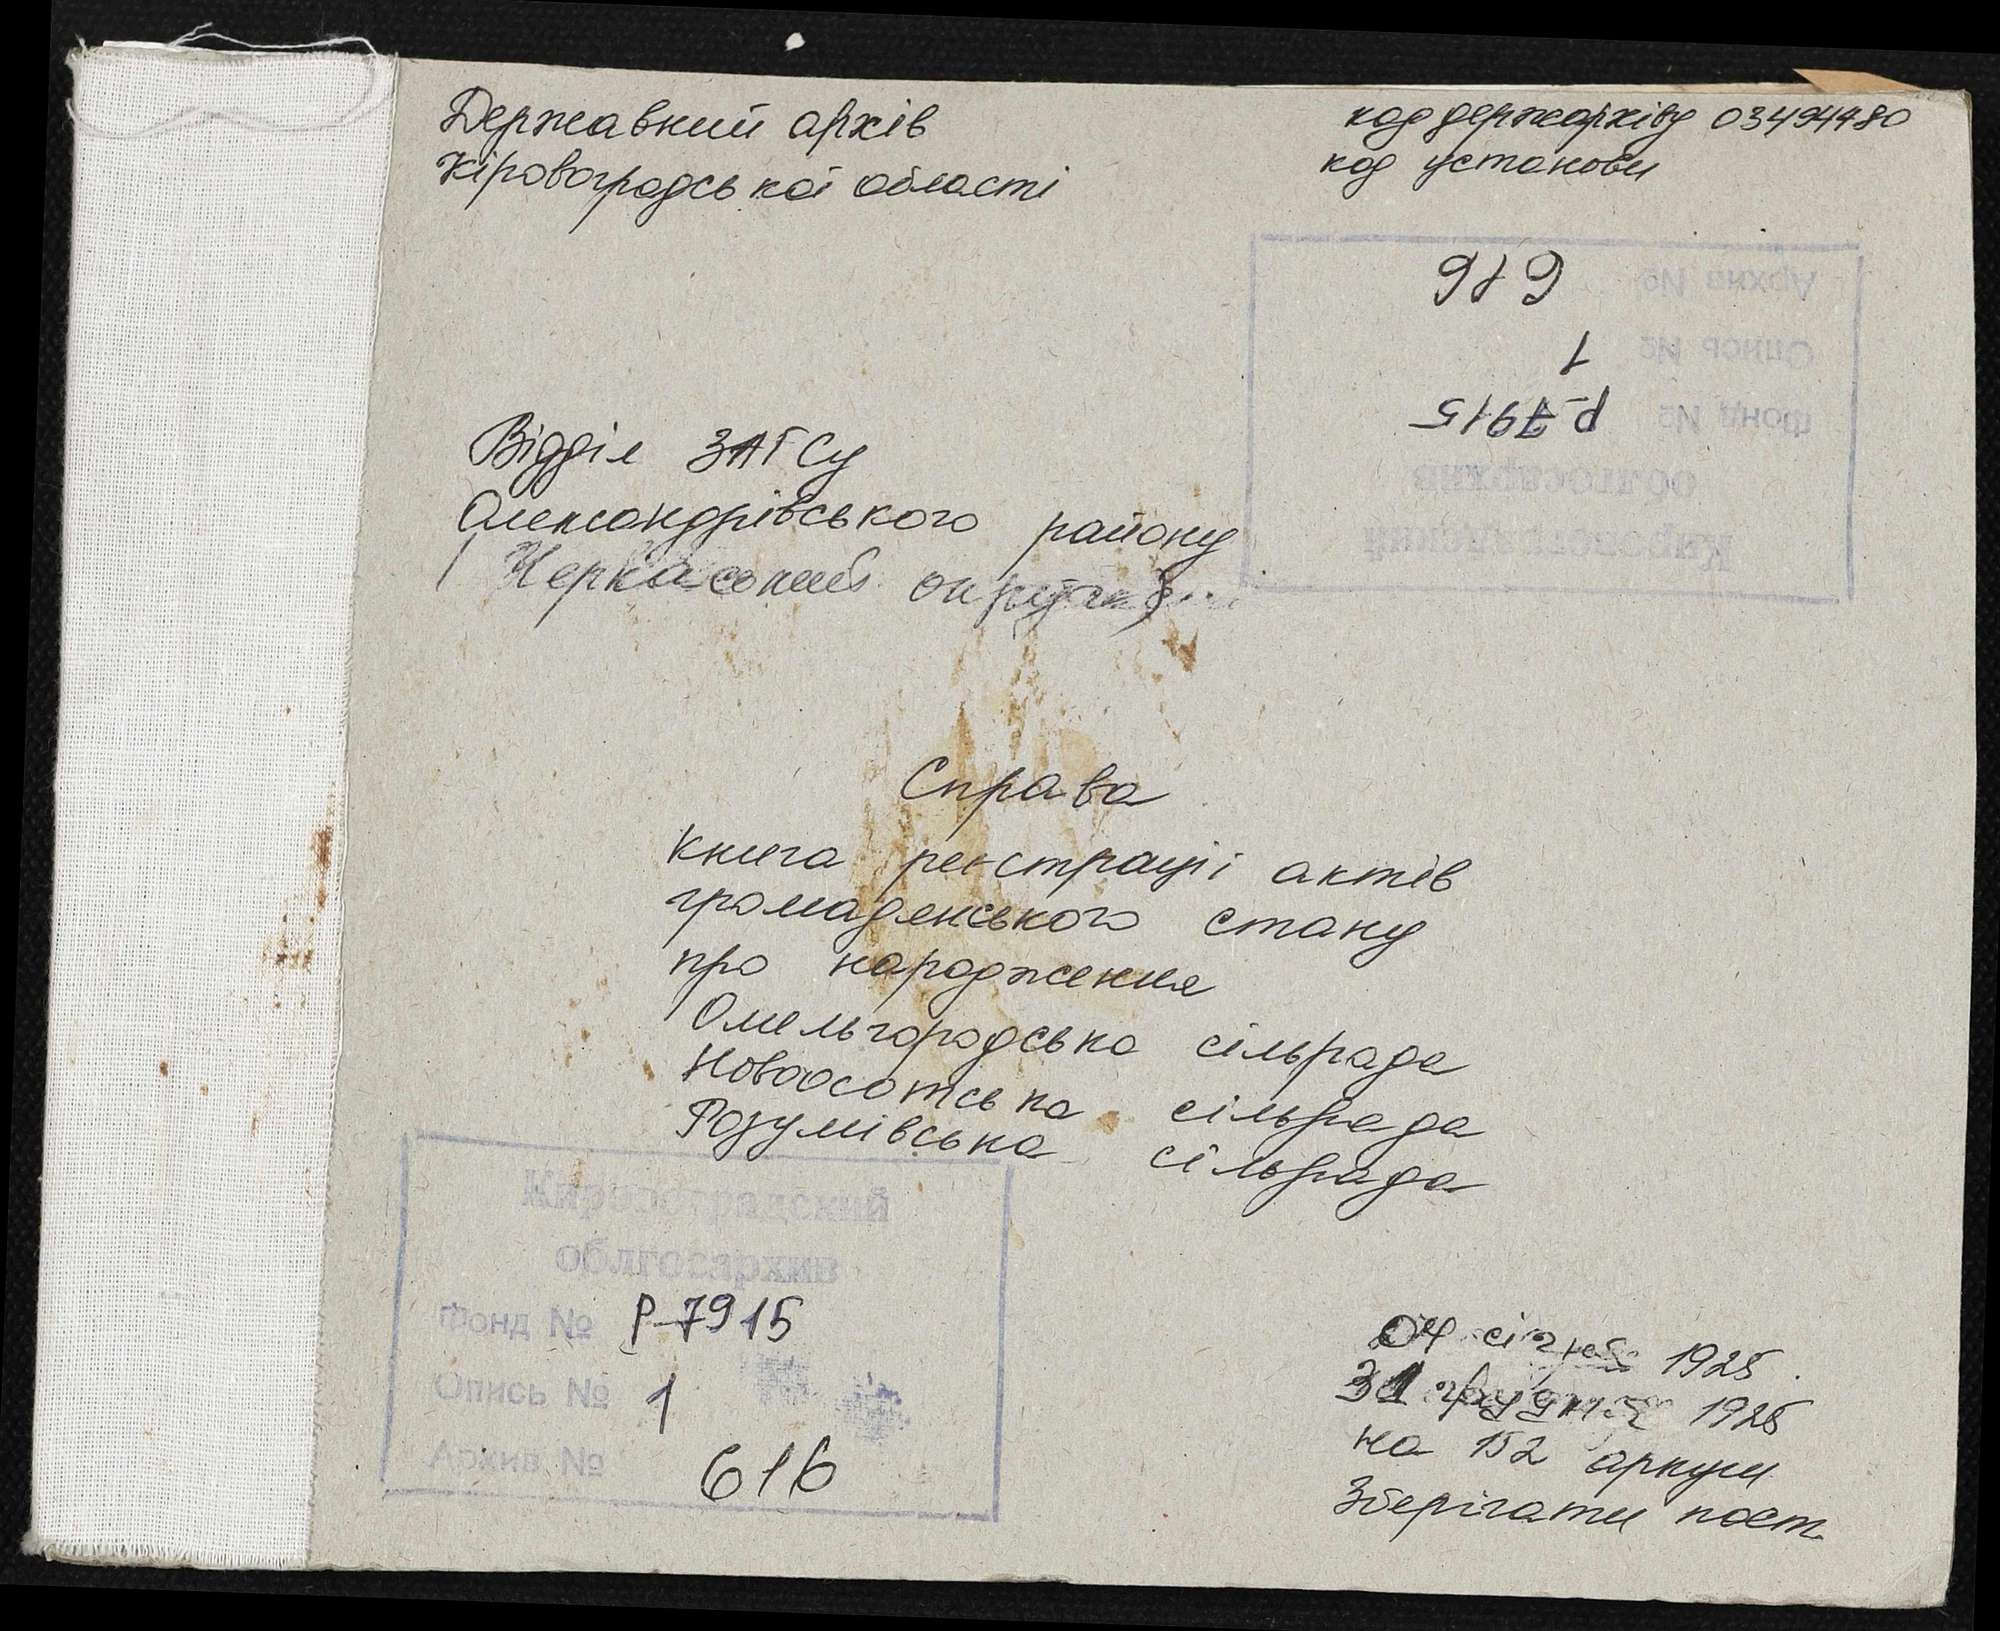 Державний архів
Кіровоградської області
код держархіву 03494480
код установи
Архив № 616
Опись № 1
Фонд № Р-7915
облгосархив
Кировоградский
Відділ ЗАГСу
Олександрівського району
Черкаський округ
Справа
книга реєстрації актів
громадянського стану
про народження
Омельгородська сільрада
Новоосотська сільрада
Розумівська сільрада
Кировоградский
облгосархив
Фонд № Р-7915
Опись № 1
Архив № 616
04 січня 1925
31 грудня 1925
на 152 аркуш
Зберігати пост.